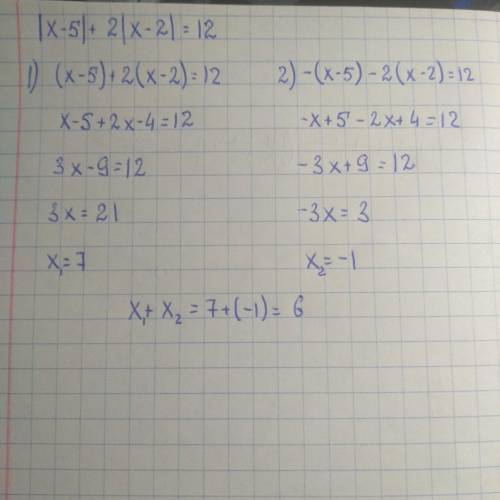 |x-5|+ 2|x-2|=12
1) (x-5)+2(x-2)=12 2) -(x-5)-2(x-2)=12
x-5+2x-4=12 -x+5-2x+4=12
3x-9=12 -3x+9=12
3x=21 -3x=3
x₁=7 x₂=-1
x₁+x₂=7+(-1)= 6